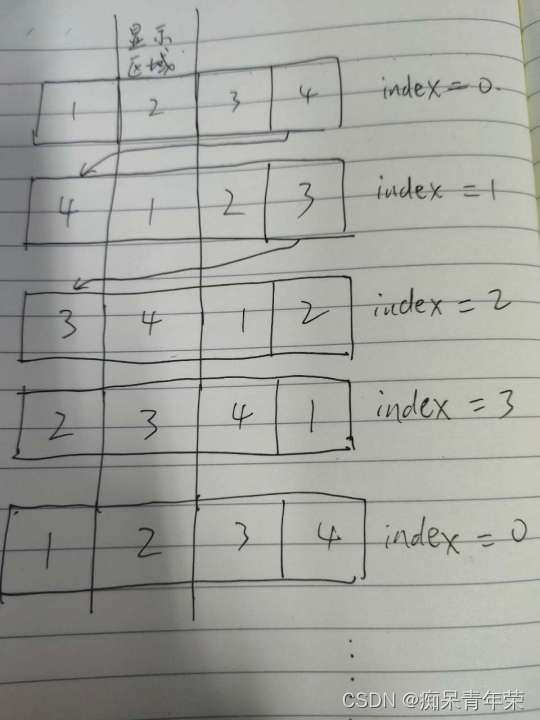 显示
区域
1 2 3 4 index=0.
4 1 2 3 index=1
3 4 1 2 index=2
2 3 4 1 index=3
1 2 3 4 index=0
⋮
CSDN @痴呆青年荣